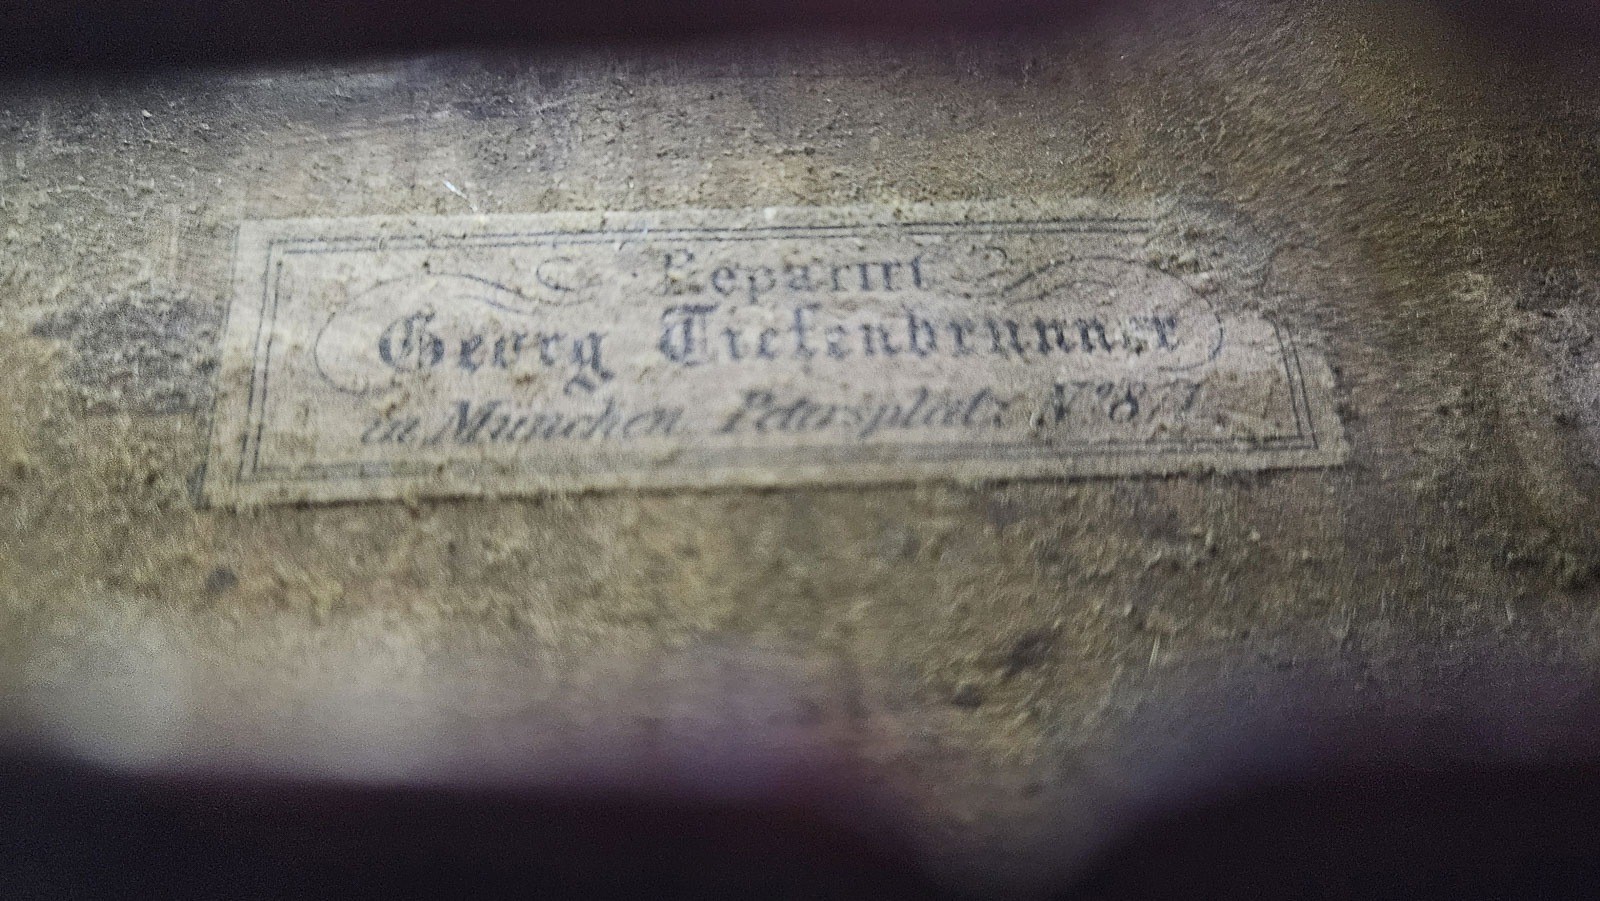 Reparirt
Georg Tiefenbrunner
in München Petersplatz Nº 8/1